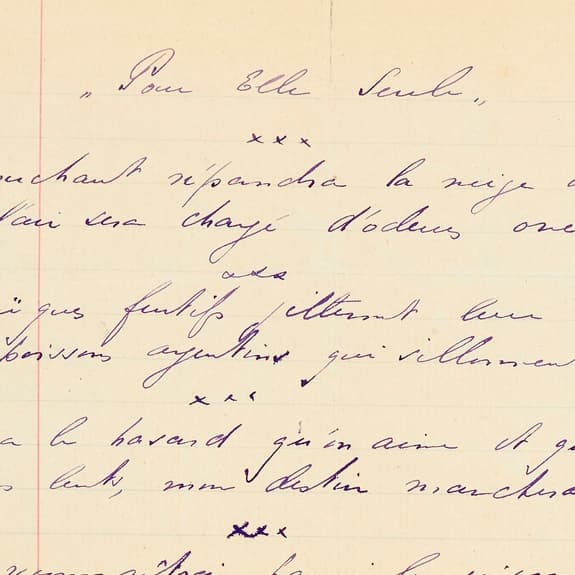 „ Pour Elle Seule „
x x x
uchant répandra la neige
l'air sera chargé d'odeurs
x x x
furtifs jetteront leur
poissons argentins qui sillonnen
x x x
a le hasard qu'on aime et
s lents, mon destin marchera
x x x